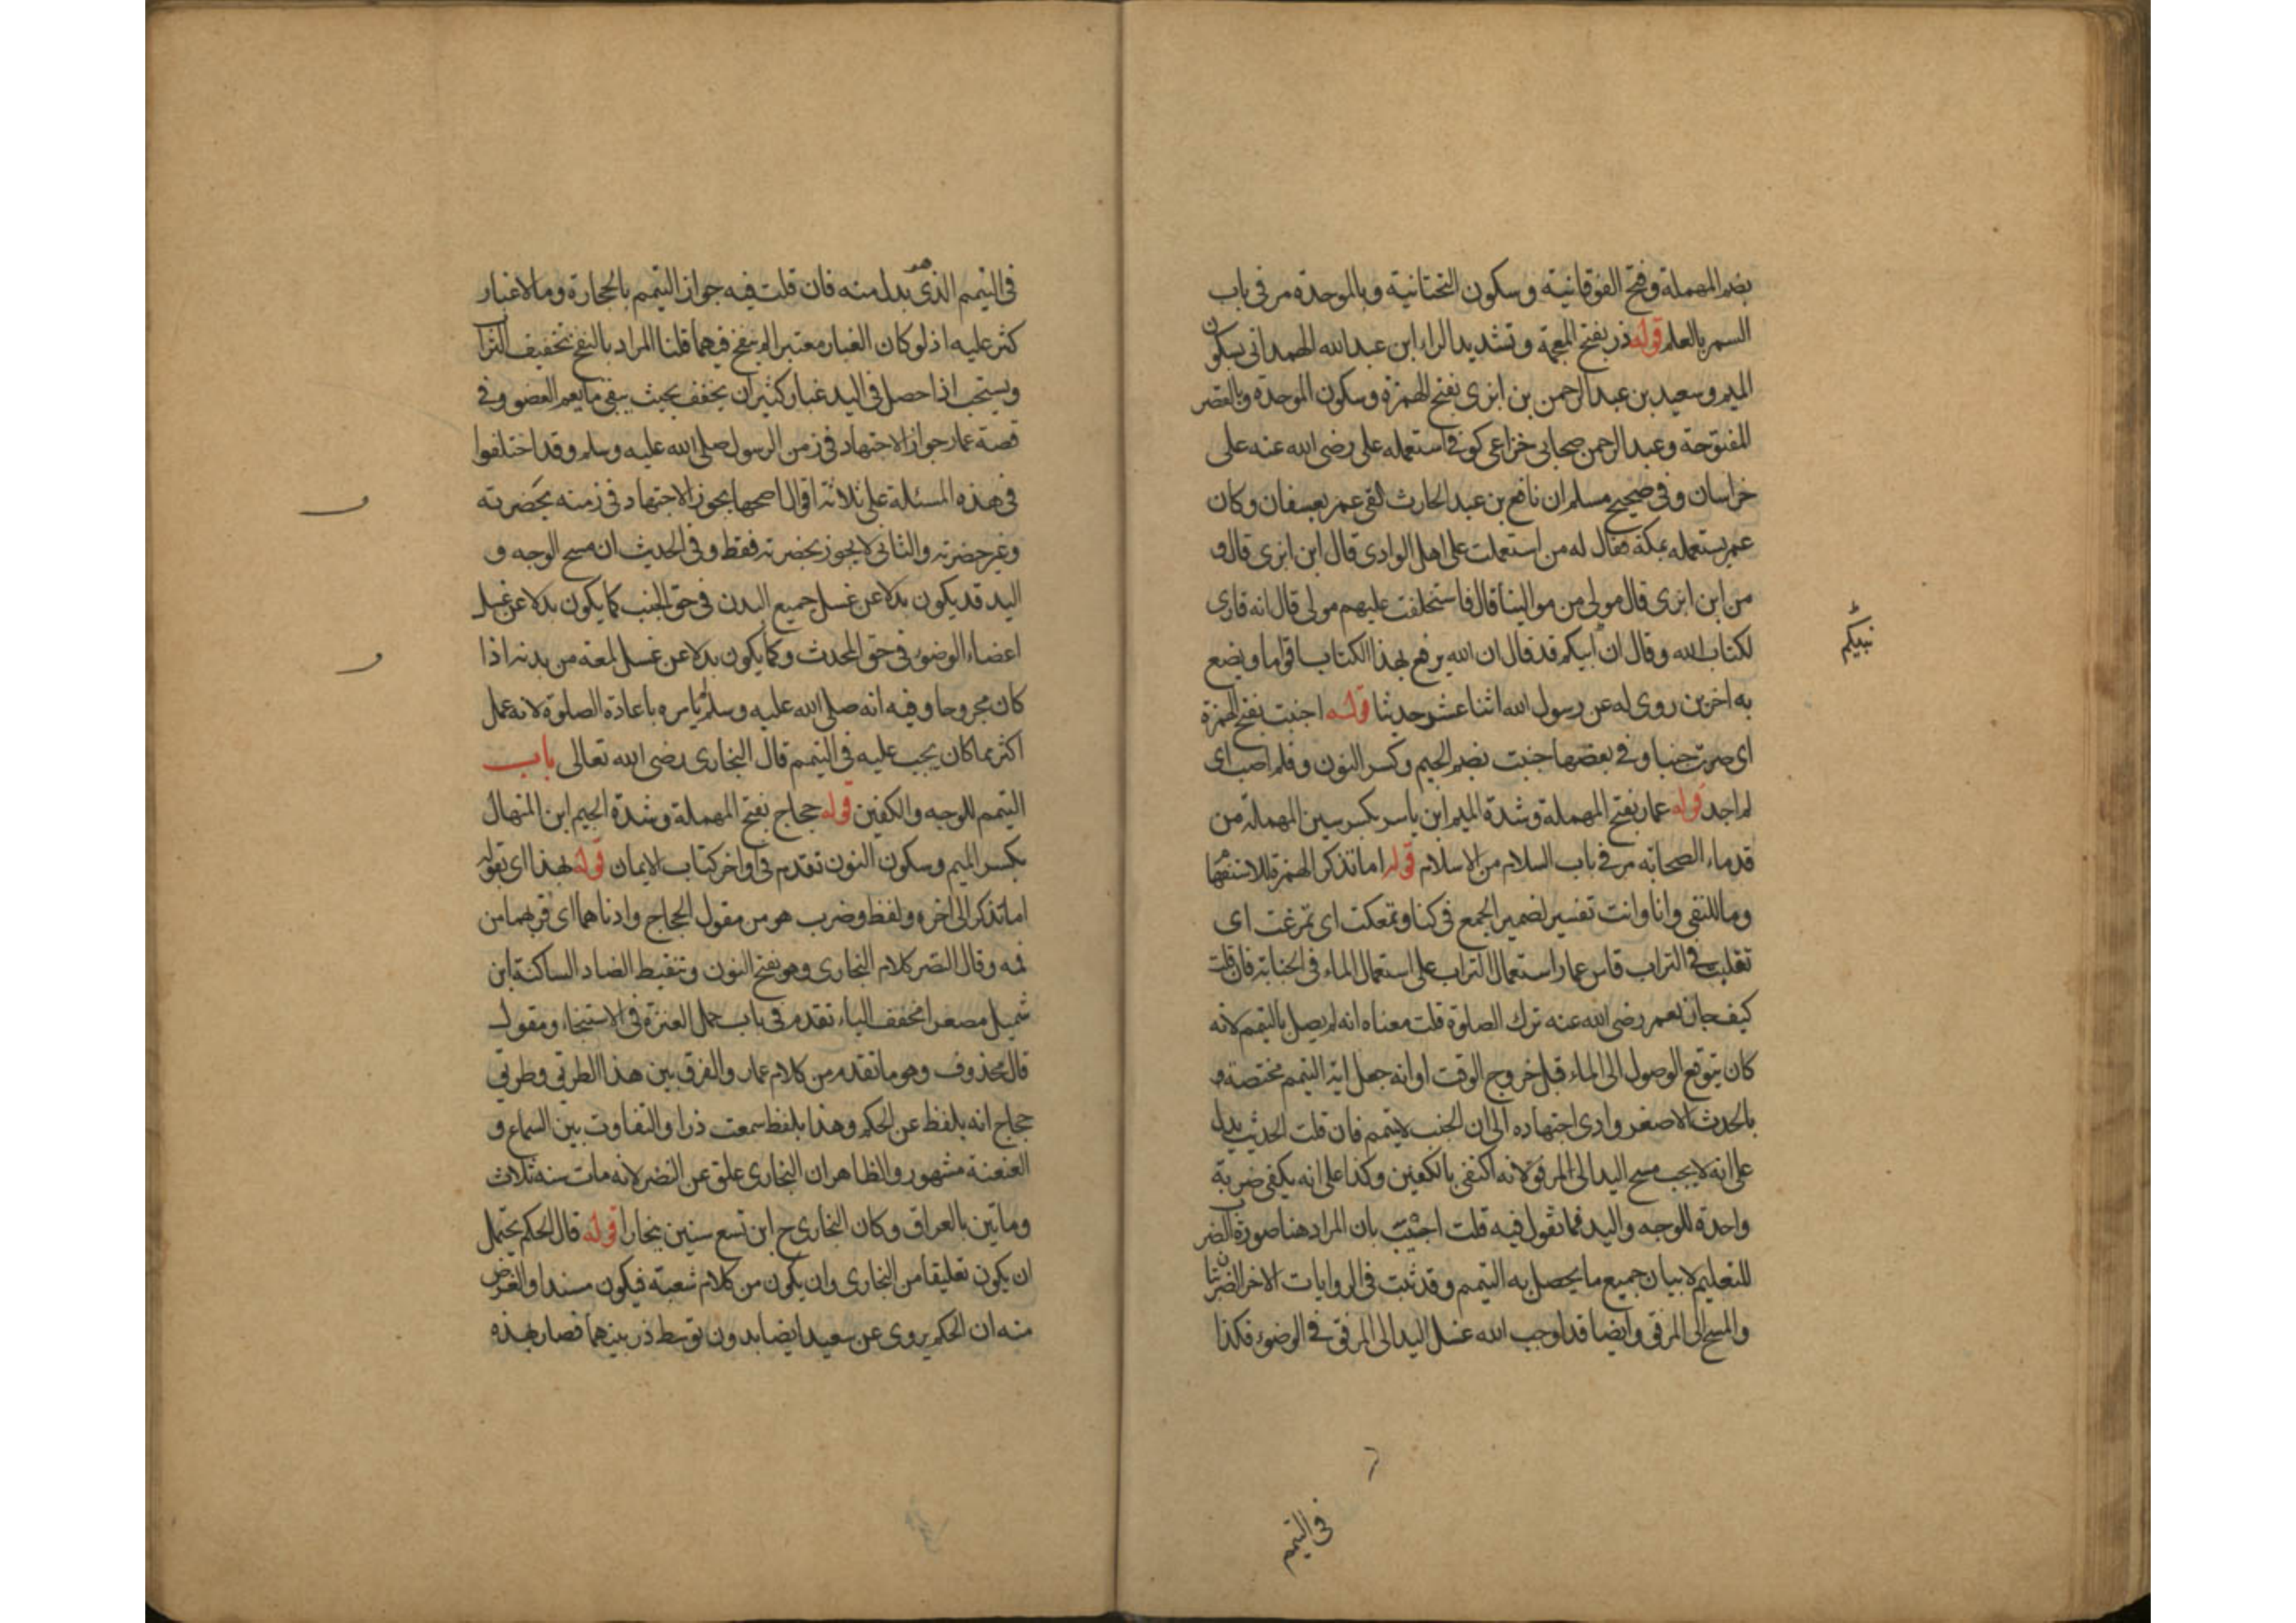 بضم المهملة وفتح الفوقانية وسكون التحتانية وبالموحدة مر في باب
السمر بالعلم قوله ذر بفتح المعجمة وتشديد الراء ابن عبد الله الهمداني بسكون
الميم وسعيد بن عبد الرحمن بن ابزى بفتح الهمزة وسكون الموحدة وبالقصر
المفتوحة وعبد الرحمن صحابي خزاعي كوفي استعمله علي رضي الله عنه على
خراسان وفي صحيح مسلم ان نافع بن عبد الحارث لقي عمر بعسفان وكان
عمر يستعمله بمكة فقال له من استعملت على اهل الوادي قال ابن ابزى قال و
من ابن ابزى قال مولى من موالينا قال فاستخلفت عليهم مولى قال انه قارئ
لكتاب الله وقال ان نبيكم قد قال ان الله يرفع بهذا الكتاب اقواما ويضع
به اخرين روي له عن رسول الله اثنا عشر حديثا قوله اجنبت بفتح الهمزة
اي صرت جنبا وفي بعضها جنبت بضم الجيم وكسر النون وفلم اصب اي
لم اجد قوله عمار بفتح المهملة وشدة الميم ابن ياسر بكسر سين المهملة من
قدماء الصحابه مر في باب السلام من الاسلام قوله اما تذكر الهمزة للاستفهام
وما للنفي وانا وانت تفسير لضمير الجمع في كنا وتمعكت اي تمرغت اي
تقلبت في التراب قاس عمار استعمال التراب على استعمال الماء في الجنابة فان قلت
كيف جاز لعمر رضي الله عنه ترك الصلوة قلت معناه انه لم يصل بالتيمم لانه
كان يتوقع الوصول الى الماء قبل خروج الوقت او انه جعل اية التيمم مختصة
بالحدث الاصغر وادى اجتهاده الى ان الجنب لا يتيمم فان قلت الحديث يدل
على انه لا يجب مسح اليد الى المرفق لانه اكتفى بالكفين وكذا على انه يكفي ضربة
واحدة للوجه واليد فما تقول فيه قلت اجيب بان المراد هنا صورة الضرب
للتعليم لا بيان جميع ما يحصل به التيمم وقد ثبت في الروايات الاخر الضربتان
والمسح الى المرفق وايضا قد اوجب الله غسل اليد الى المرفق في الوضوء فكذا
نبيكم
في التيمم
في التيمم الذي هو بدل منه فان قلت فيه جواز التيمم بالحجارة وما لا غبار
كثر عليه اذ لو كان الغبار معتبرا لم ينفخ فيهما قلنا المراد بالنفخ تخفيف التراب
ويستحب اذا حصل في اليد غبار كثير ان يخفف بحيث يبقى ما يعم العضو وفي
قصة عمار جواز الاجتهاد في زمن الرسول صلى الله عليه وسلم وقد اختلفوا
في هذه المسئلة على ثلاثة اقوال اصحها يجوز الاجتهاد في زمنه بحضرته
وغير حضرته والثاني لا يجوز بحضرته فقط وفي الحديث ان مسح الوجه و
اليد قد يكون بدلا عن غسل جميع البدن في حق الجنب كما يكون بدلا عن غسل
اعضاء الوضوء في حق المحدث وكما يكون بدلا عن غسل لمعة من بدنه اذا
كان مجروحا وفيه انه صلى الله عليه وسلم لم يامره باعادة الصلوة لانه عمل
اكثر مما كان يجب عليه في التيمم قال البخاري رضى الله تعالى باب
التيمم للوجه والكفين قوله حجاج بفتح المهملة وشدة الجيم ابن المنهال
بكسر الميم وسكون النون تقدم في اواخر كتاب الايمان قوله بهذا اي بقوله
اما تذكر الى اخره ولفظ وضرب هو من مقول الحجاج وادناهما اي قربهما من
فيه وقال النضر كلام البخاري وهو بفتح النون وتنقيط الضاد الساكنة ابن
شميل مصغرا مخفف الياء تقدم في باب حمل العنزة في الاستنجاء ومقول
قال محذوف وهو ما تقدم من كلام عمار والفرق بين هذا الطريق وطريق
حجاج انه بلفظ عن الحكم وهذا بلفظ سمعت ذرا والتفاوت بين السماع و
العنعنة مشهور والظاهر ان البخاري علق عن النضر لانه مات سنه ثلاث
وماتين بالعراق وكان البخاري ح ابن تسع سنين ببخارا قوله قال الحكم يحتمل
ان يكون تعليقا من البخاري وان يكون من كلام شعبة فيكون مسندا والغرض
منه ان الحكم يروي عن سعيد ايضا بدون توسط ذر بينهما فصار بهذه